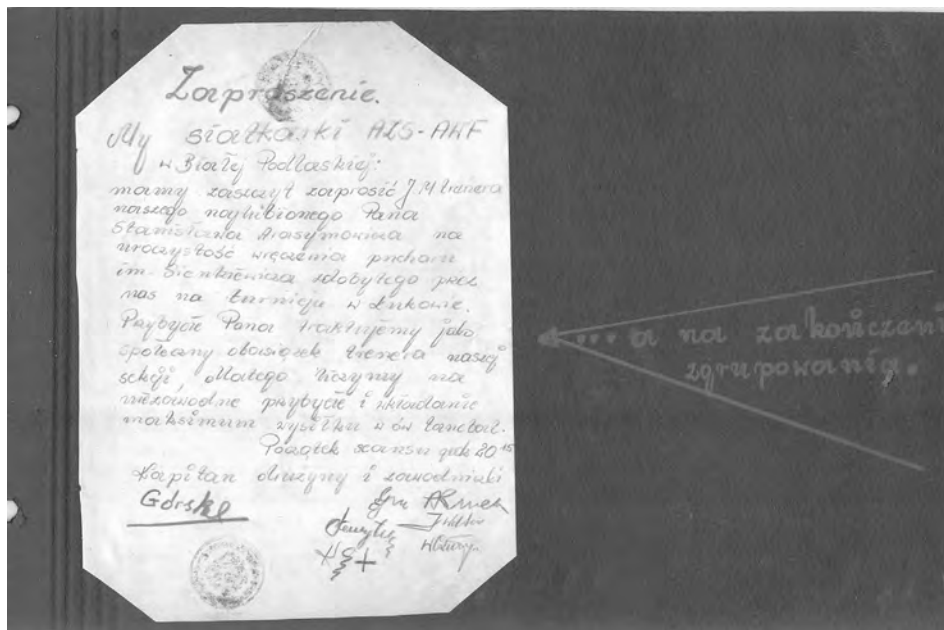 Zaproszenie.
My siatkarki AZS-AWF
w Białej Podlaskiej:
mamy zaszczyt zaprosić J.M. trenera
naszego najlubionego Pana
Stanisława Arasymowicza na
uroczystość wręczenia pucharu
im. Sienkiewicza zdobytego przez
nas na turnieju w Łukowie.
Przybycie Pana traktujemy jako
społeczny obowiązek trenera naszej
sekcji, dlatego liczymy na
niezawodne przybycie i wkładanie
maksimum wysiłku w ów
Początek seansu godz 20 15
Kapitan drużyny i zawodniczki
Górska
... a na zakończeni
zgrupowania.